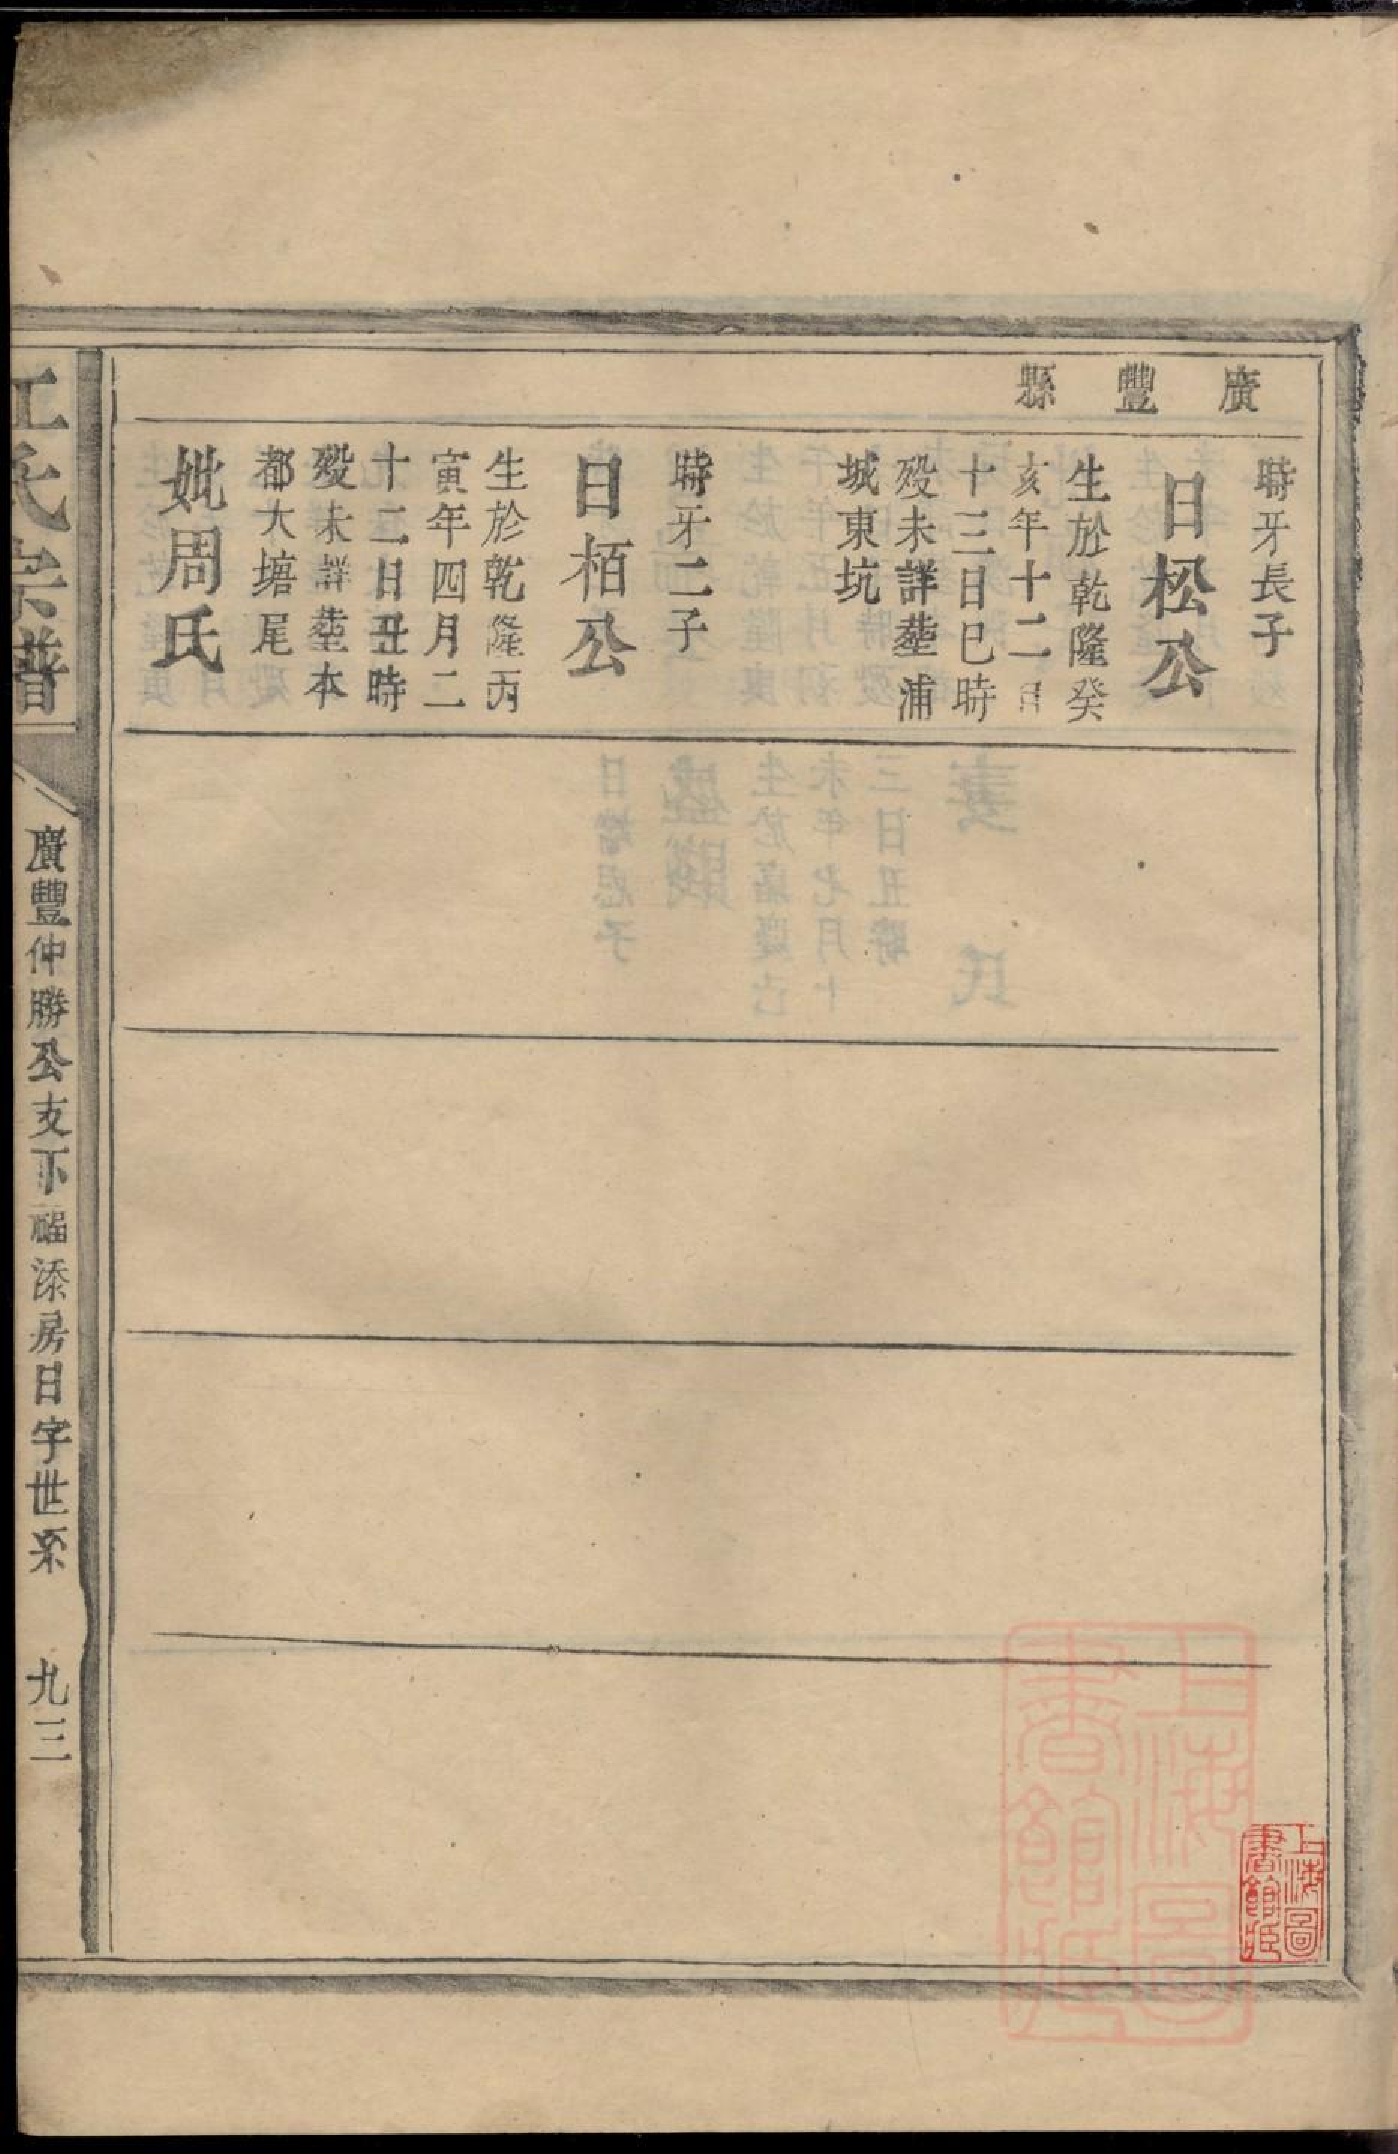 廣豐縣
時牙長子
日松公
生於乾隆癸
亥年十二月
十三日巳時
殁未詳塟浦
城東坑
時牙二子
日栢公
生於乾隆丙
寅年四月二
十二日丑時
殁未詳塟本
都大塘尾
妣周氏
江氏宗譜
廣豐仲勝公支下福添房日字世系
九三
上海圖書館藏